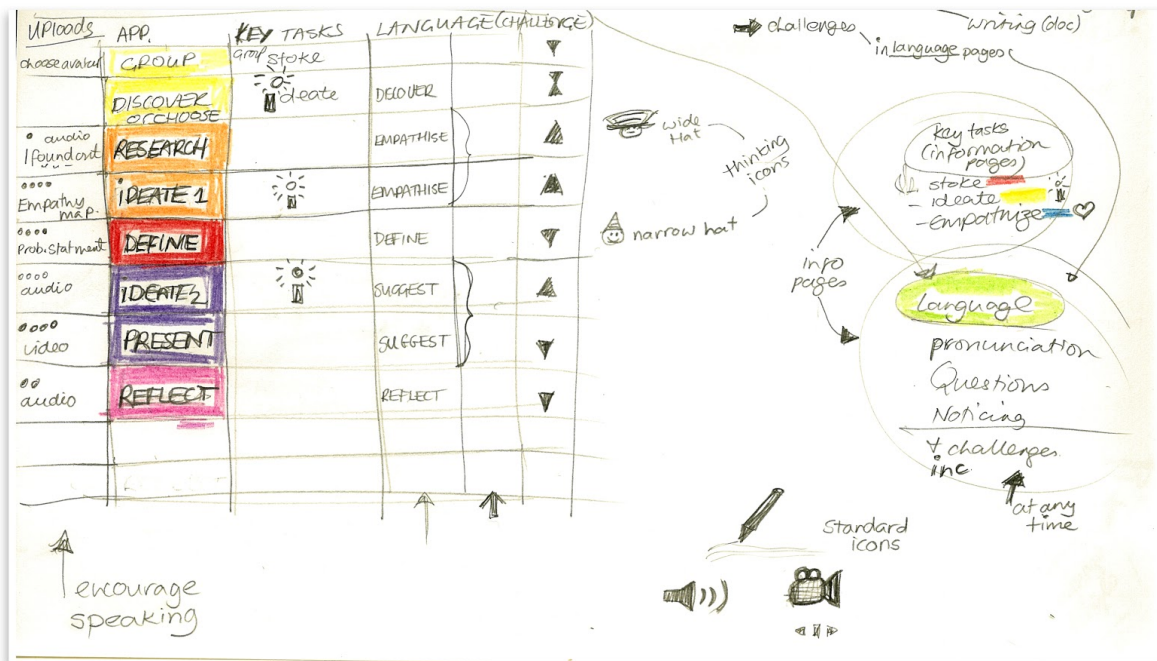 UPLOADS APP. KEY TASKS LANGUAGE (CHALLENGE)
choose avatar GROUP Group stoke
DISCOVER OR CHOOSE ideate DECOVER
audio
I found out RESEARCH EMPATHISE
Empathy map. IDEATE 1 EMPATHISE
Prob. Statment DEFINE DEFINE
audio IDEATE 2 SUGGEST
video PRESENT SUGGEST
audio REFLECT REFLECT
encourage
speaking
wide
Hat
thinking
icons
narrow hat
challenges
writing (doc)
in language pages
Key tasks
(information
pages)
stoke
- ideate
- Empathize
info
pages
Language
pronunciation
Questions
Noticing
+ challenges
inc
at any
time
Standard
icons